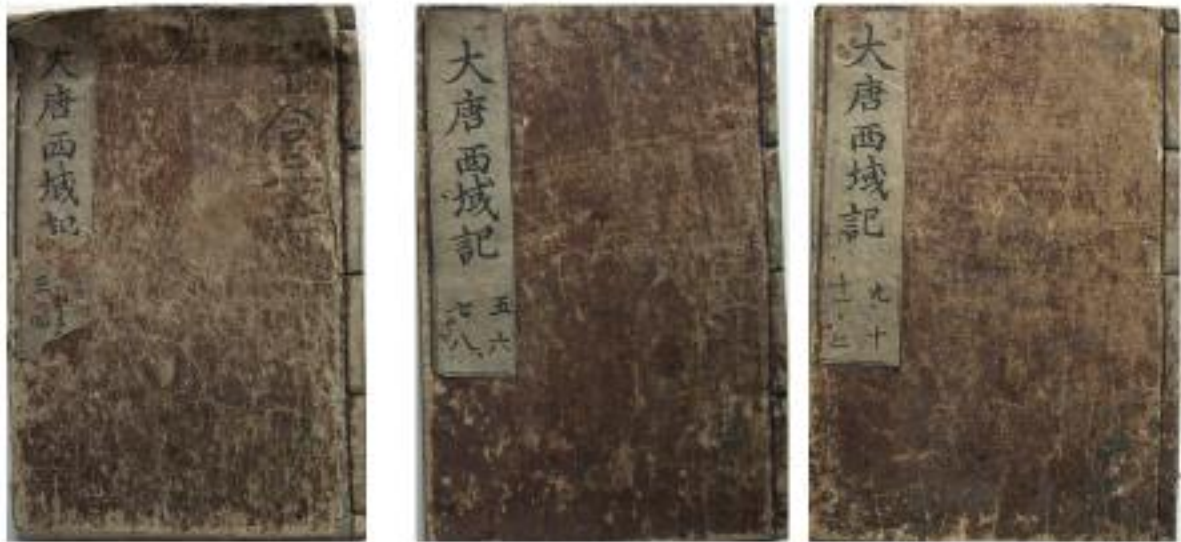 大唐西域記
三
合三
大唐西域記
五六
七八
大唐西域記
九十
十一